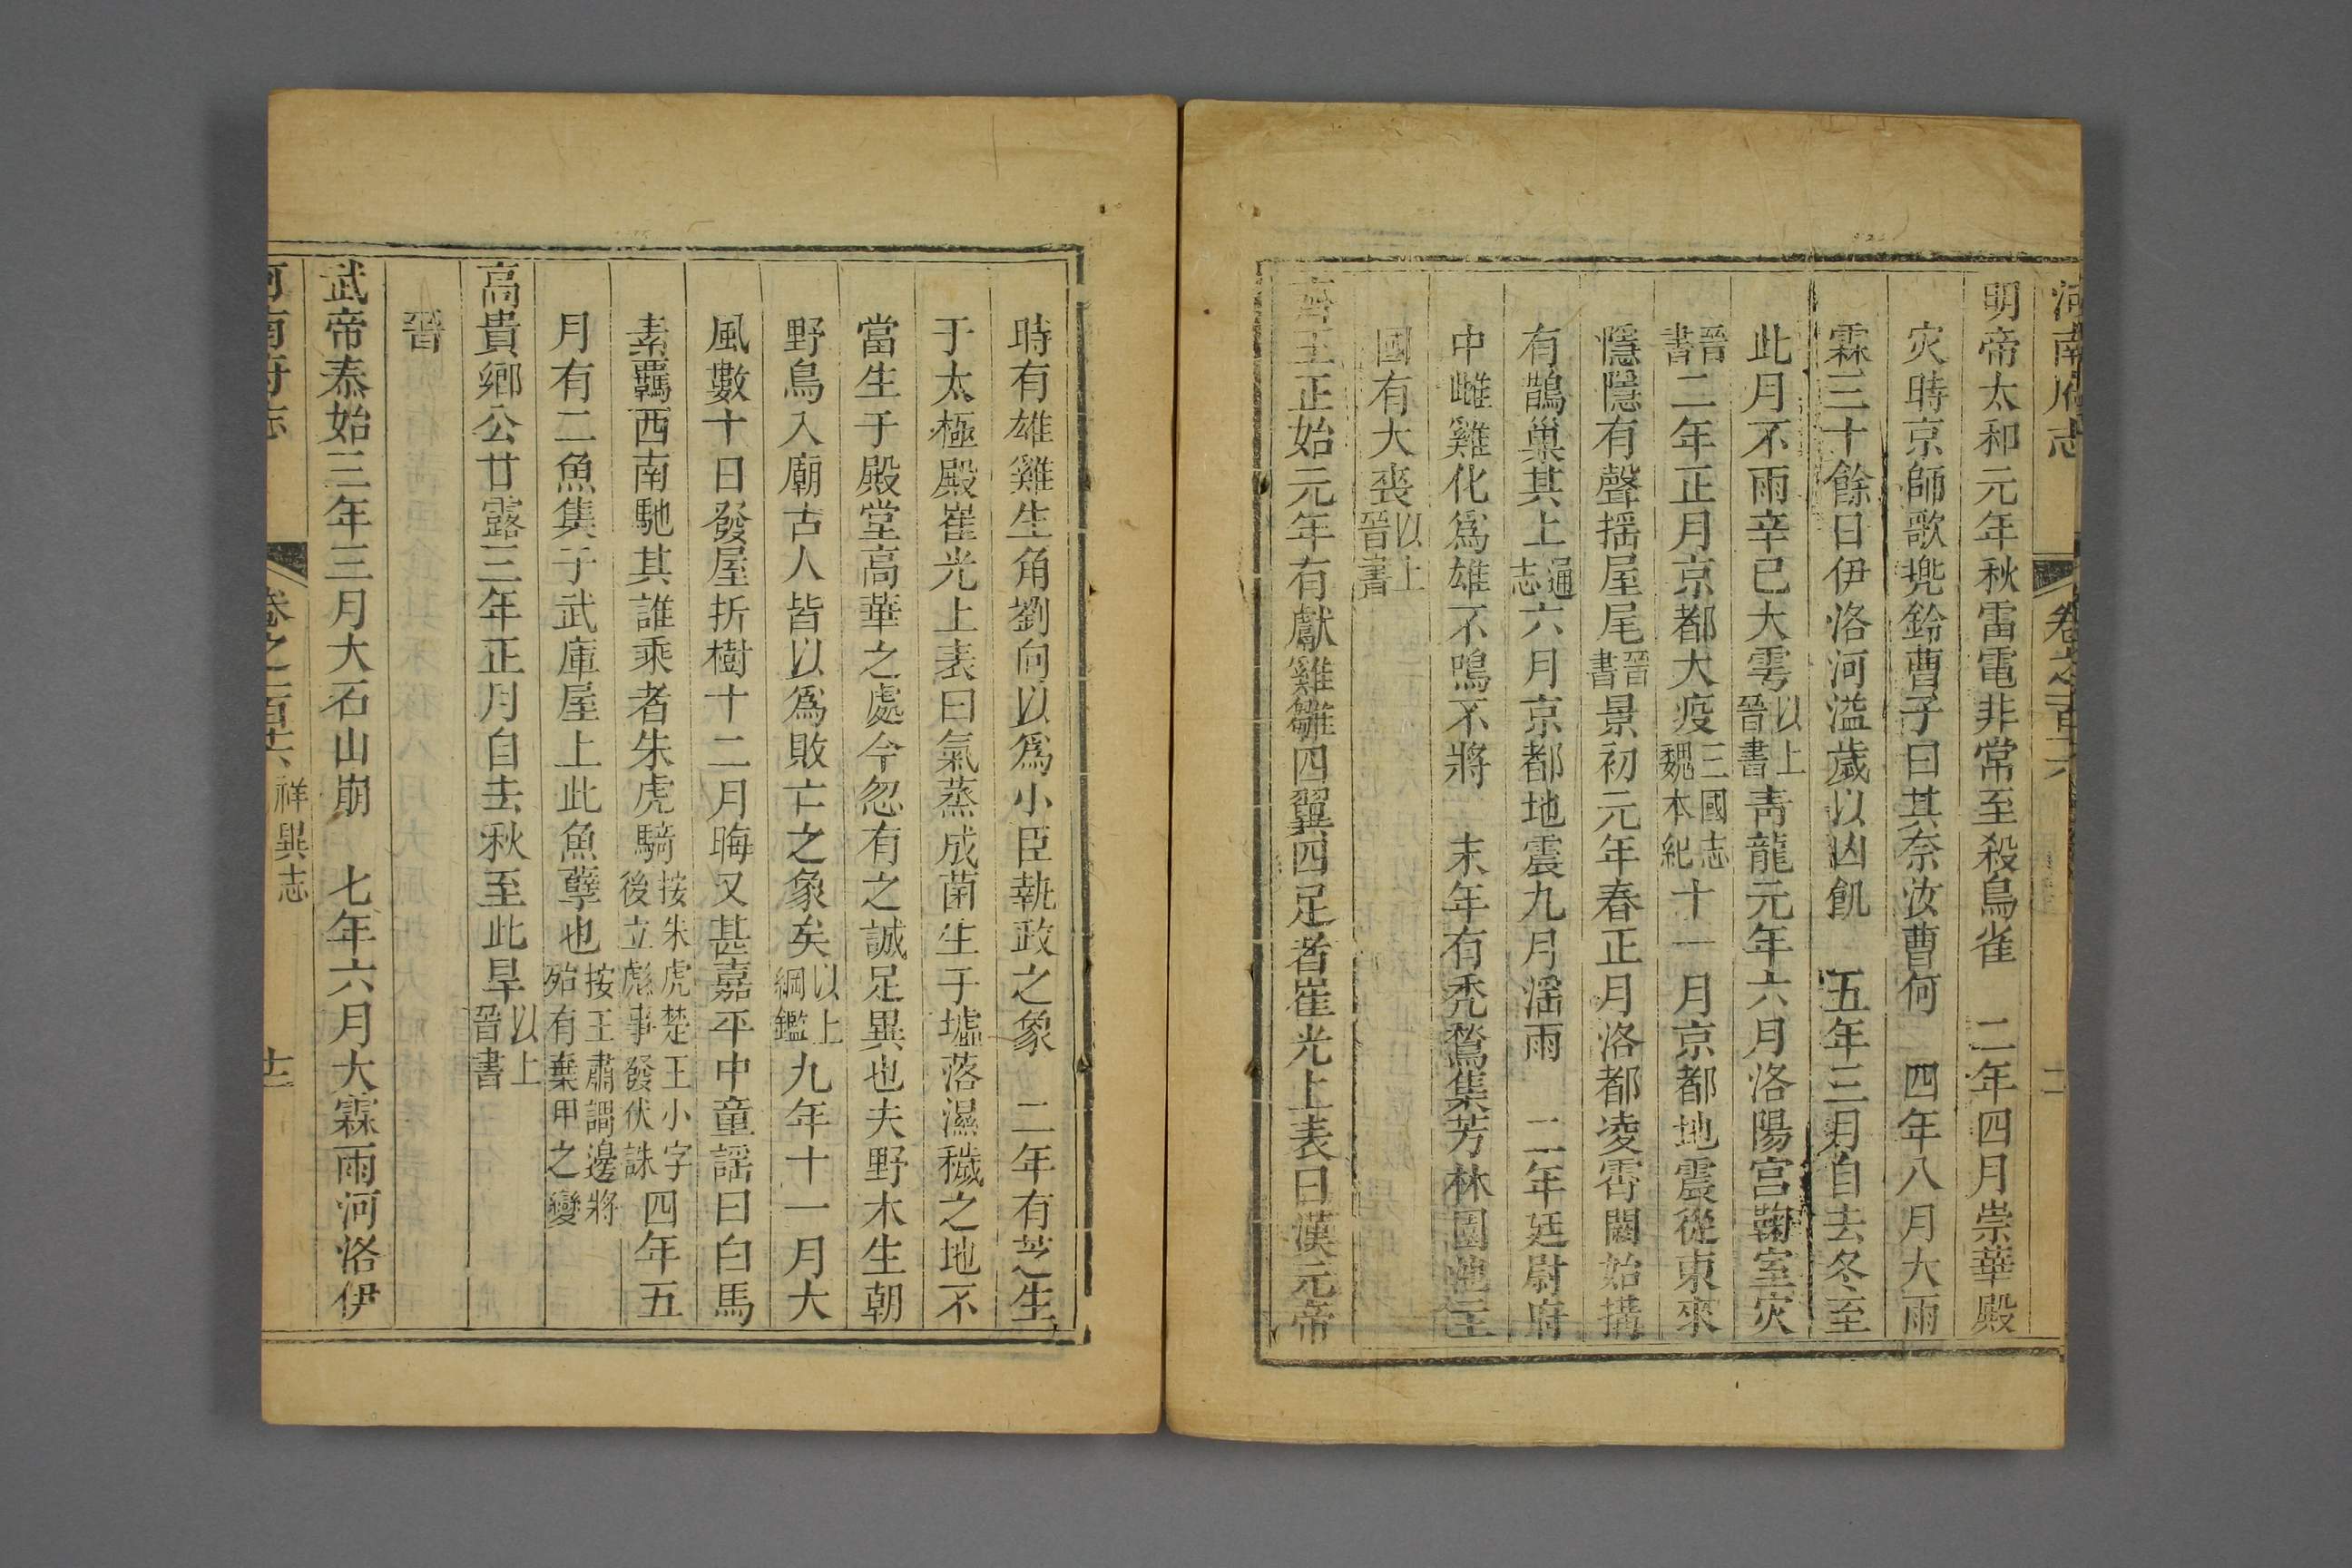 河南府志 卷之百十六 十一
明帝太和元年秋雷電非常至殺鳥雀 二年四月崇華殿
灾時京師歌兠鈴曹子曰其奈汝曹何 四年八月大雨
霖三十餘日伊洛河溢歲以凶飢 五年三月自去冬至
此月不雨辛巳大雩以上晉書青龍元年六月洛陽宮鞠室灾
晉書二年正月京都大疫三國志魏本紀十一月京都地震從東來
隱隱有聲揺屋尾晉書景初元年春正月洛都凌霄闕始搆
有鵲巢其上通志六月京都地震九月滛雨 二年廷尉府
中雌雞化爲雄不鳴不將 末年有禿鶖集芳林園池王
國有大喪以上晉書
齊王正始元年有獻雞雛四翼四足者崔光上表曰漢元帝
時有雄雞生角劉向以爲小臣執政之象 二年有芝生
于太極殿崔光上表曰氣蒸成菌生于墟落濕穢之地不
當生于殿堂高華之處今忽有之誠足異也夫野木生朝
野鳥入廟古人皆以爲敗亡之象矣以上綱鑑九年十一月大
風數十日發屋折樹十二月晦又甚嘉平中童謡曰白馬
素覊西南馳其誰乘者朱虎騎按朱虎楚王小字後立彪事發伏誅四年五
月有二魚集于武庫屋上此魚孽也按王肅謂邊將殆有棄甲之變
高貴鄉公甘露三年正月自去秋至此旱以上晉書
晉
武帝泰始三年三月大石山崩 七年六月大霖雨河洛伊
河南府志 卷之百十六 祥異志 十二